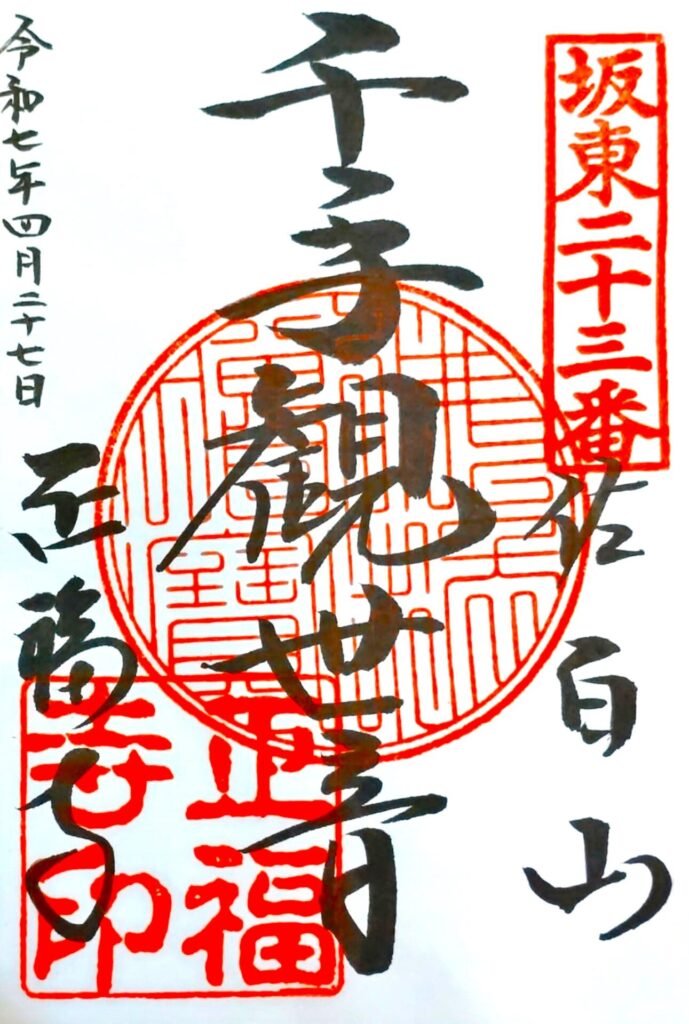 坂東二十三番
佐白山
千手觀世音
正福寺
令和七年四月二十七日
正福
寺印